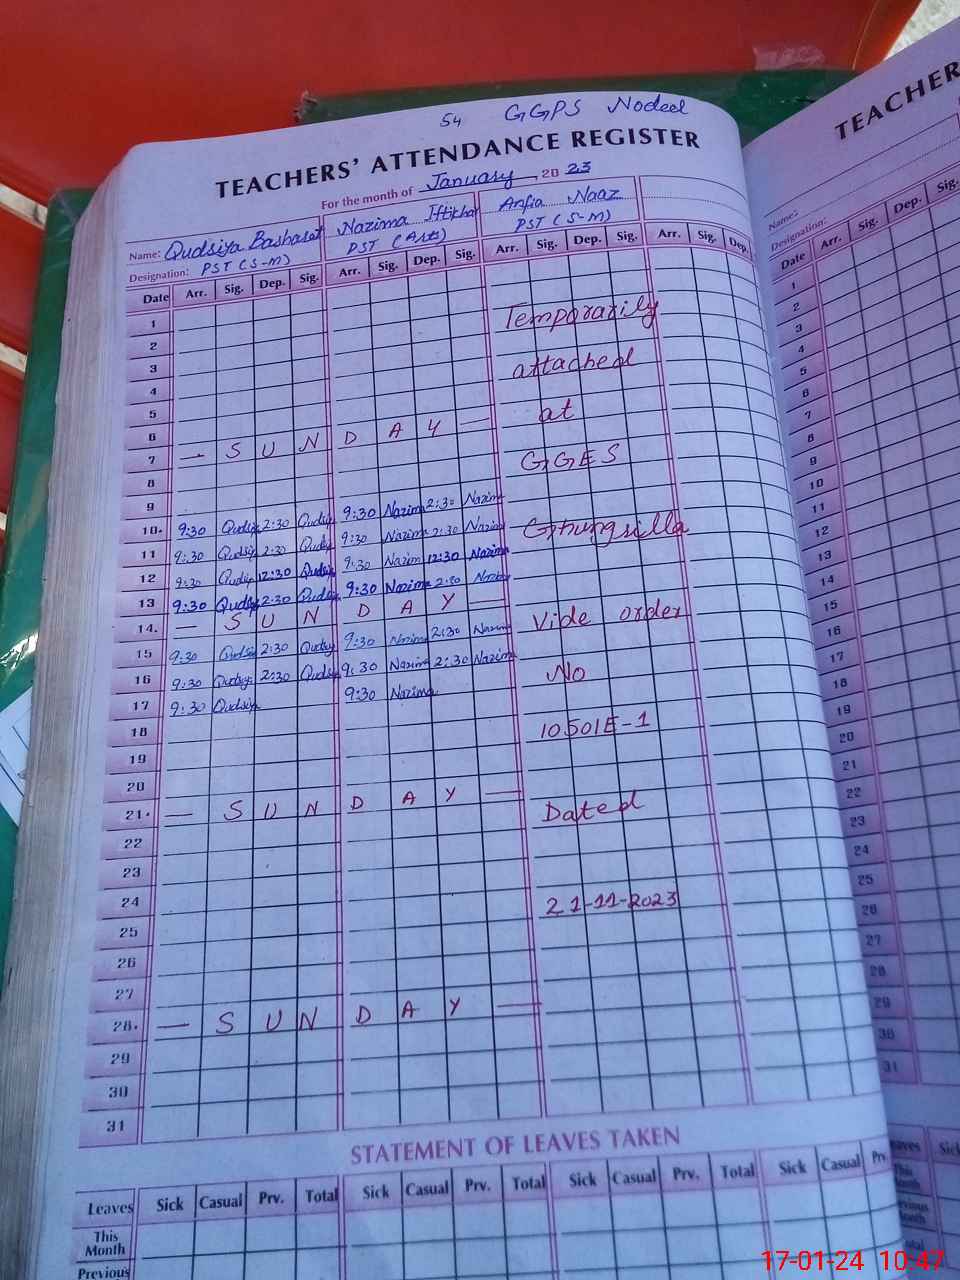 54 GGPS Nodeel
TEACHERS' ATTENDANCE REGISTER
For the month of January, 2023
Name: Qudsiya Basharat Nazima Iftikhar Anfia Naaz
Designation: PST (S-M) PST (Arts) PST (S-M)
Date Arr. Sig. Dep. Sig. Arr. Sig. Dep. Sig. Arr. Sig. Dep. Sig. Arr. Sig. Dep.
1
2 Temporarily
3
4 attached
5
6 at
7 — S U N D A Y —
8 GGES
9
10. 9:30 Qudsiya 2:30 Qudsiya 9:30 Nazima 2:30 Nazima
11 9:30 Qudsiya 2:30 Qudsiya 9:30 Nazima 2:30 Nazima Ghungsilla
12 9:30 Qudsiya 12:30 Qudsiya 9:30 Nazima 12:30 Nazima
13 9:30 Qudsiya 2:30 Qudsiya 9:30 Nazima 2:30 Nazima
14. — S U N D A Y — Vide order
15 9:30 Qudsiya 2:30 Qudsiya 9:30 Nazima 2:30 Nazima
16 9:30 Qudsiya 2:30 Qudsiya 9:30 Nazima 2:30 Nazima No
17 9:30 Qudsiya 9:30 Nazima
18 10501E-1
19
20
21. — S U N D A Y — Dated
22
23
24 21-11-2023
25
26
27
28. — S U N D A Y —
29
30
31
STATEMENT OF LEAVES TAKEN
Leaves Sick Casual Prv. Total Sick Casual Prv. Total Sick Casual Prv. Total Sick Casual Prv.
This Month
Previous
TEACHER
Name:
Designation:
Date Arr. Sig. Dep. Sig.
1
2
3
4
5
6
7
8
9
10
11
12
13
14
15
16
17
18
19
20
21
22
23
24
25
26
27
28
29
30
31
Sick
This Month
17-01-24 10:47